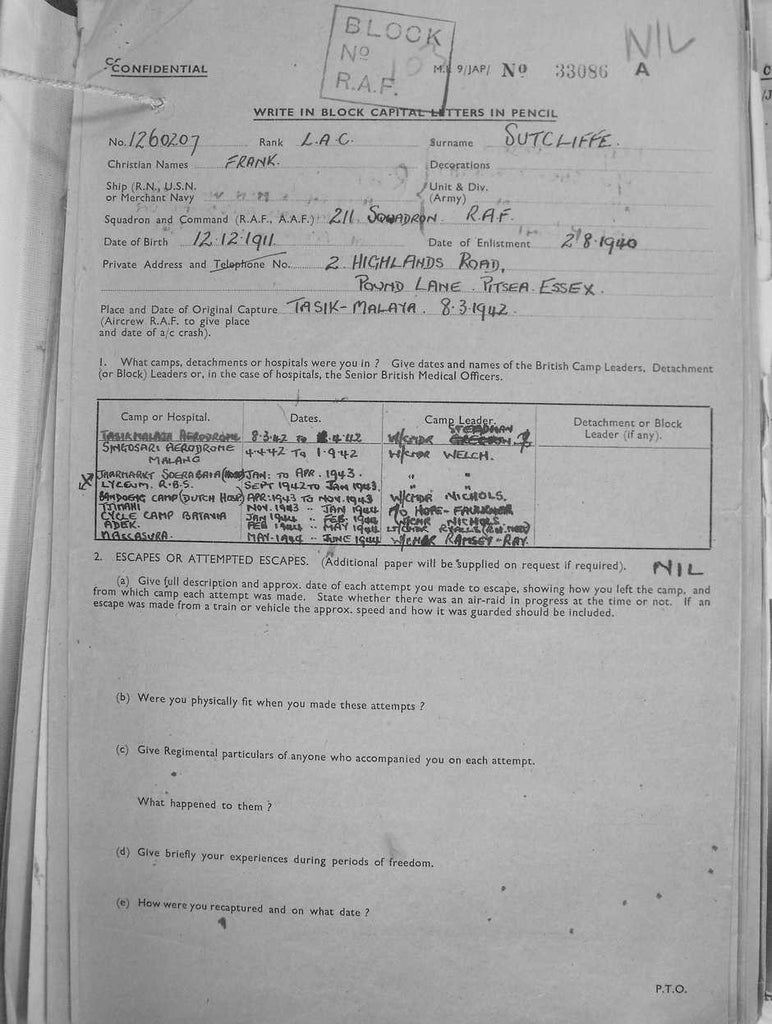 BLOCK
Nº
R.A.F.
NIL
CONFIDENTIAL
M.I. 9/JAP/ Nº 33086 A
WRITE IN BLOCK CAPITAL LETTERS IN PENCIL
No. 1260207 Rank L.A.C. Surname SUTCLIFFE.
Christian Names FRANK. Decorations
Ship (R.N., U.S.N. or Merchant Navy
Unit & Div. (Army)
Squadron and Command (R.A.F., A.A.F.) 211 SQUADRON R.A.F.
Date of Birth 12.12.1911 Date of Enlistment 2 8.1940
Private Address and Telephone No. 2 HIGHLANDS ROAD,
POUND LANE. PITSEA. ESSEX.
Place and Date of Original Capture TASIK-MALAYA. 8.3.1942.
(Aircrew R.A.F. to give place
and date of a/c crash).
1. What camps, detachments or hospitals were you in ? Give dates and names of the British Camp Leaders, Detachment
(or Block) Leaders or, in the case of hospitals, the Senior British Medical Officers.
Camp or Hospital. Dates. Camp Leader. Detachment or Block
Leader (if any).
STEEDMAN
TASIKMALAYA AERODROME 8.3.42 TO 4.42 W/CMDR
SINGOSARI AERODROME 4.4.42 TO 1.9.42 W/CMDR WELCH.
MALANG
JAARMARKT SOERABAIA (HOSP) JAN: TO APR. 1943. " "
LYCEUM. R.B.S. SEPT 1942 TO JAN 1943. " "
BANDOENG CAMP (DUTCH HOSP) APR. 1943 TO NOV. 1943 W/CMDR NICHOLS.
TJIMAHI NOV. 1943 .. JAN 1944 HOPE-FAULKNER
CYCLE CAMP BATAVIA JAN 1944 .. FEB. 1944 W/CMR NICHOLS
ADEK. FEB 1944 .. MAY 1944
MACCASURA. MAY. 1944 .. JUNE 1944 W/CMDR RAMSEY-RAY.
2. ESCAPES OR ATTEMPTED ESCAPES. (Additional paper will be supplied on request if required). NIL
(a) Give full description and approx. date of each attempt you made to escape, showing how you left the camp, and
from which camp each attempt was made. State whether there was an air-raid in progress at the time or not. If an
escape was made from a train or vehicle the approx. speed and how it was guarded should be included.
(b) Were you physically fit when you made these attempts ?
(c) Give Regimental particulars of anyone who accompanied you on each attempt.
What happened to them ?
(d) Give briefly your experiences during periods of freedom.
(e) How were you recaptured and on what date ?
P.T.O.